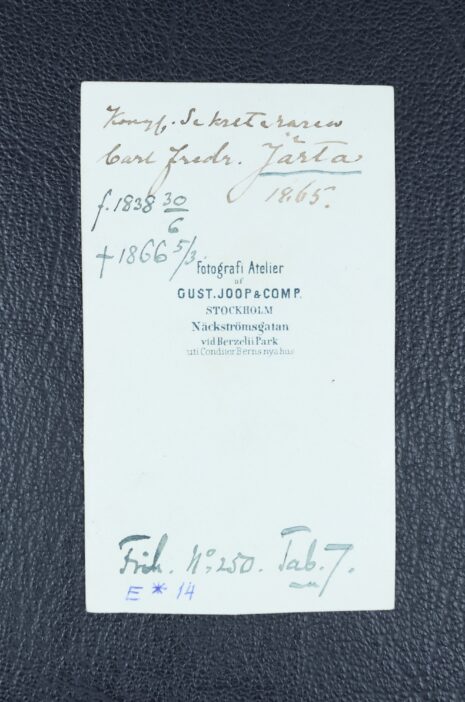 Kongl. Sekreteraren
Carl Fredr. Järta
1865.
f. 1838 30/6
† 1866 5/3
Fotografi Atelier
af
GUST. JOOP & COMP.
STOCKHOLM
Näckströmsgatan
vid Berzelii Park
uti Conditor Berns nya hus
Frih. No. 250. Tab. 7.
E * 14